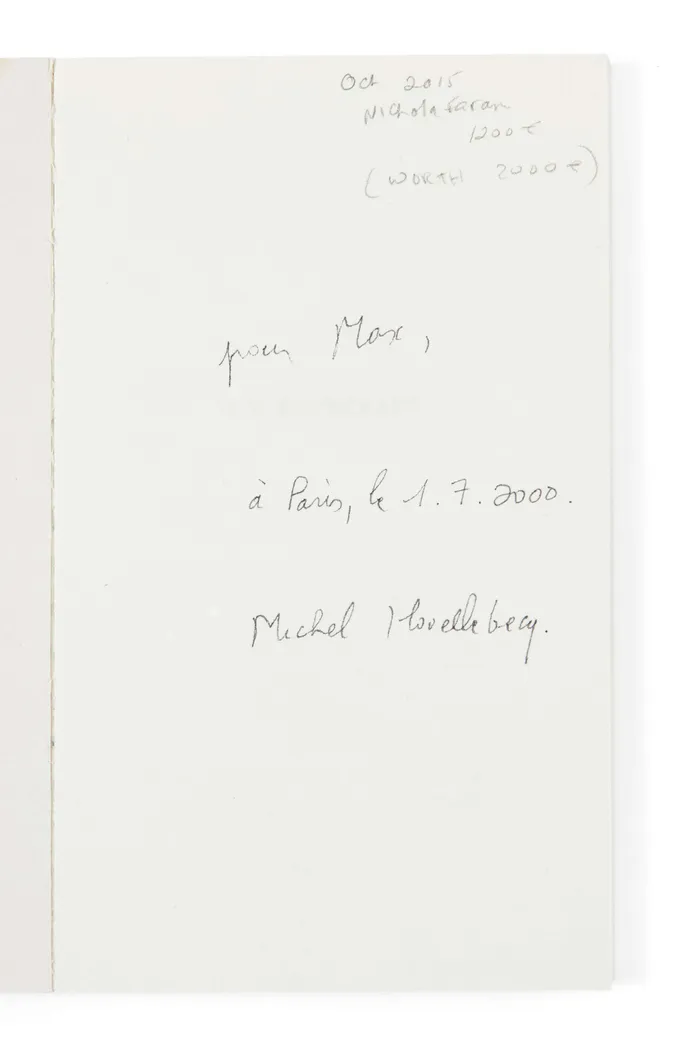 Oct 2015
Nichola Faran
1200 €
(WORTH 2000 €)
pour Max,
à Paris, le 1.7.2000.
Michel Houellebecq.